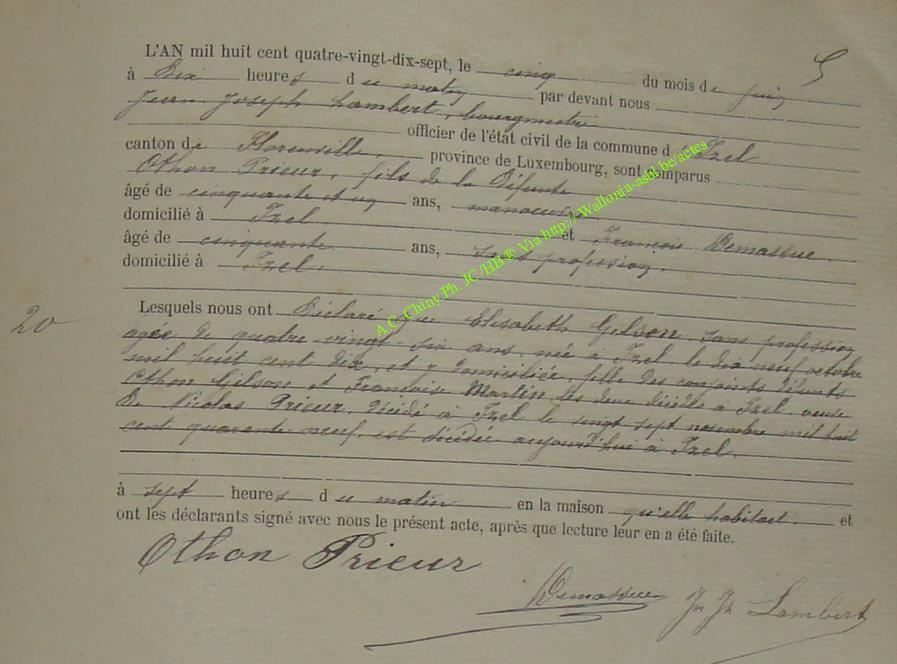 5
L'AN mil huit cent quatre-vingt-dix-sept, le cinq du mois de juin
à dix heures du matin par devant nous
Jean Joseph Lambert, bourgmestre
officier de l'état civil de la commune d'Izel
canton de Florenville, province de Luxembourg, sont comparus
Othon Prieur, fils de la défunte
âgé de cinquante et un ans, manoeuvre
domicilié à Izel et François Demassue,
âgé de cinquante ans, sans profession,
domicilié à Izel.
20
Lesquels nous ont déclaré que Elisabeth Gilson, sans profession
agée de quatre vingt six ans, née à Izel, le dix neuf octobre
mil huit cent dix, et y domiciliée, fille des conjoints défunts
Othon Gilson et Françoise Martin, les deux décédés à Izel, veuve
de Nicolas Prieur, décédé à Izel le vingt sept novembre mil huit
cent quarante neuf, est décédée aujourd'hui à Izel.
à sept heures du matin en la maison qu'elle habitait. et
ont les déclarants signé avec nous le présent acte, après que lecture leur en a été faite.
Othon Prieur
Demassue Jn Jh Lambert
A.C. Chiny Ph. JC /HB ® Via http://Wallonia-asbl.be/actes